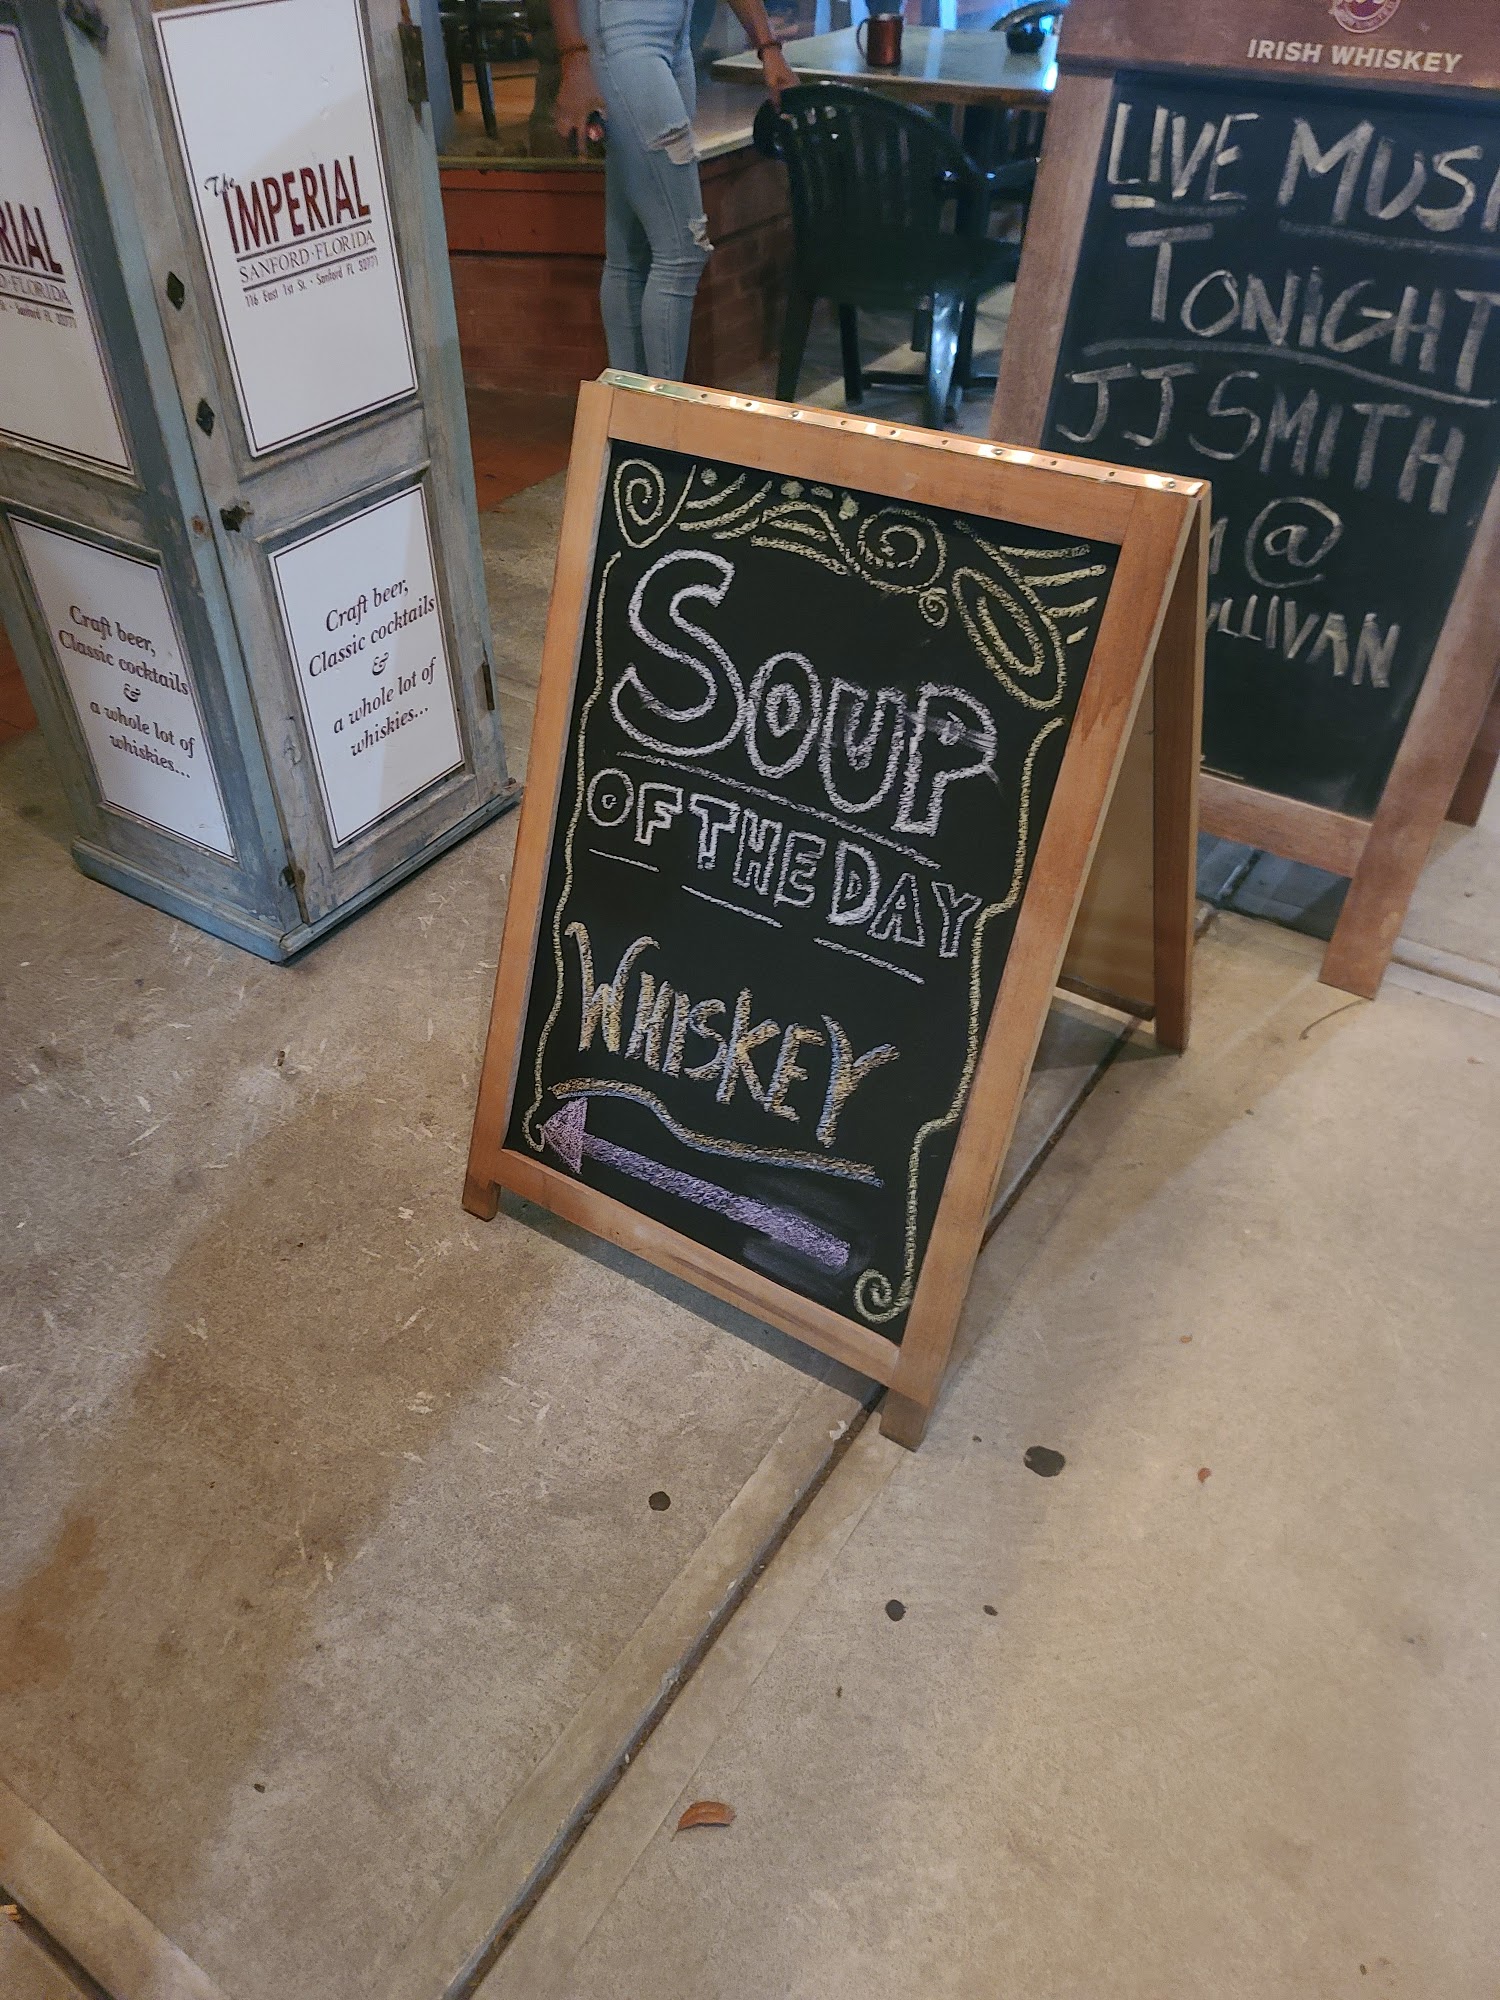 RIAL
D·FLORIDA
Sanford FL 32771
The
IMPERIAL
SANFORD·FLORIDA
116 East 1st St. · Sanford FL 32771
Craft beer,
Classic cocktails
&
a whole lot of
whiskies...
Craft beer,
Classic cocktails
&
a whole lot of
whiskies...
SOUP
OF THE DAY
WHISKEY
IRISH WHISKEY
LIVE MUSI
TONIGHT
JJ SMITH
@
ULLIVAN